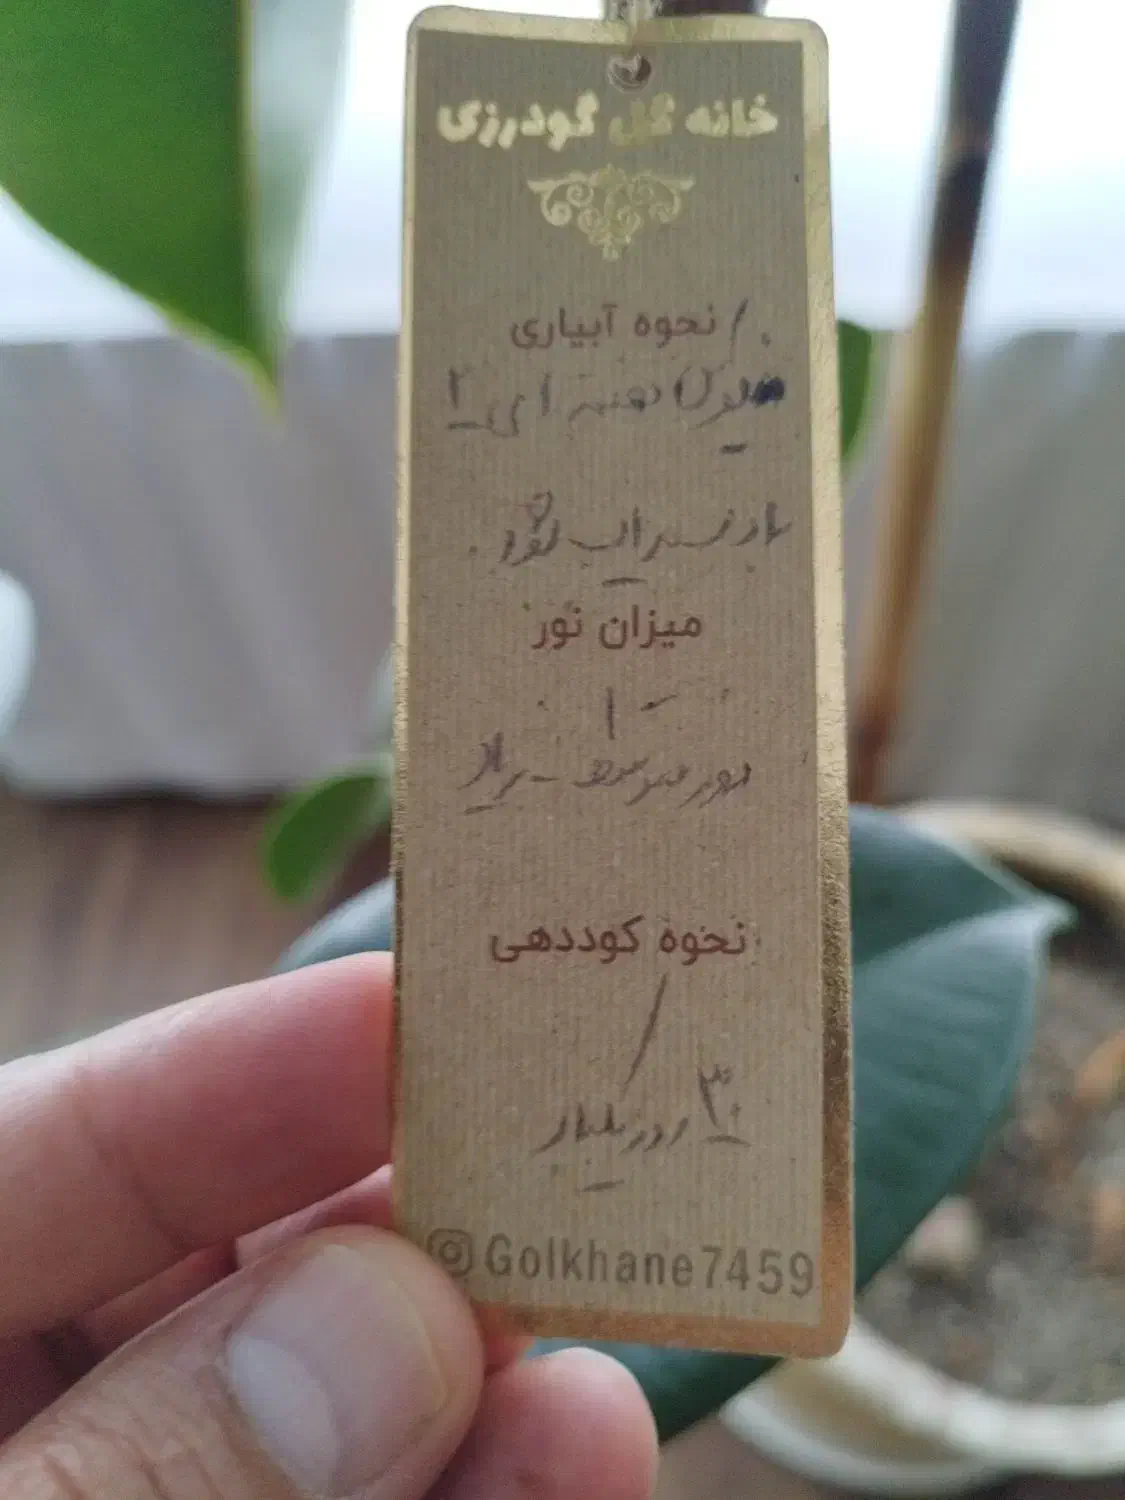 خانه گل گودرزی
نحوه آبیاری
هفته ای ۲
بار سیراب شود.
میزان نور
نور متوسط - زیاد
نحوه کوددهی
۳۰ روز یکبار
Golkhane7459